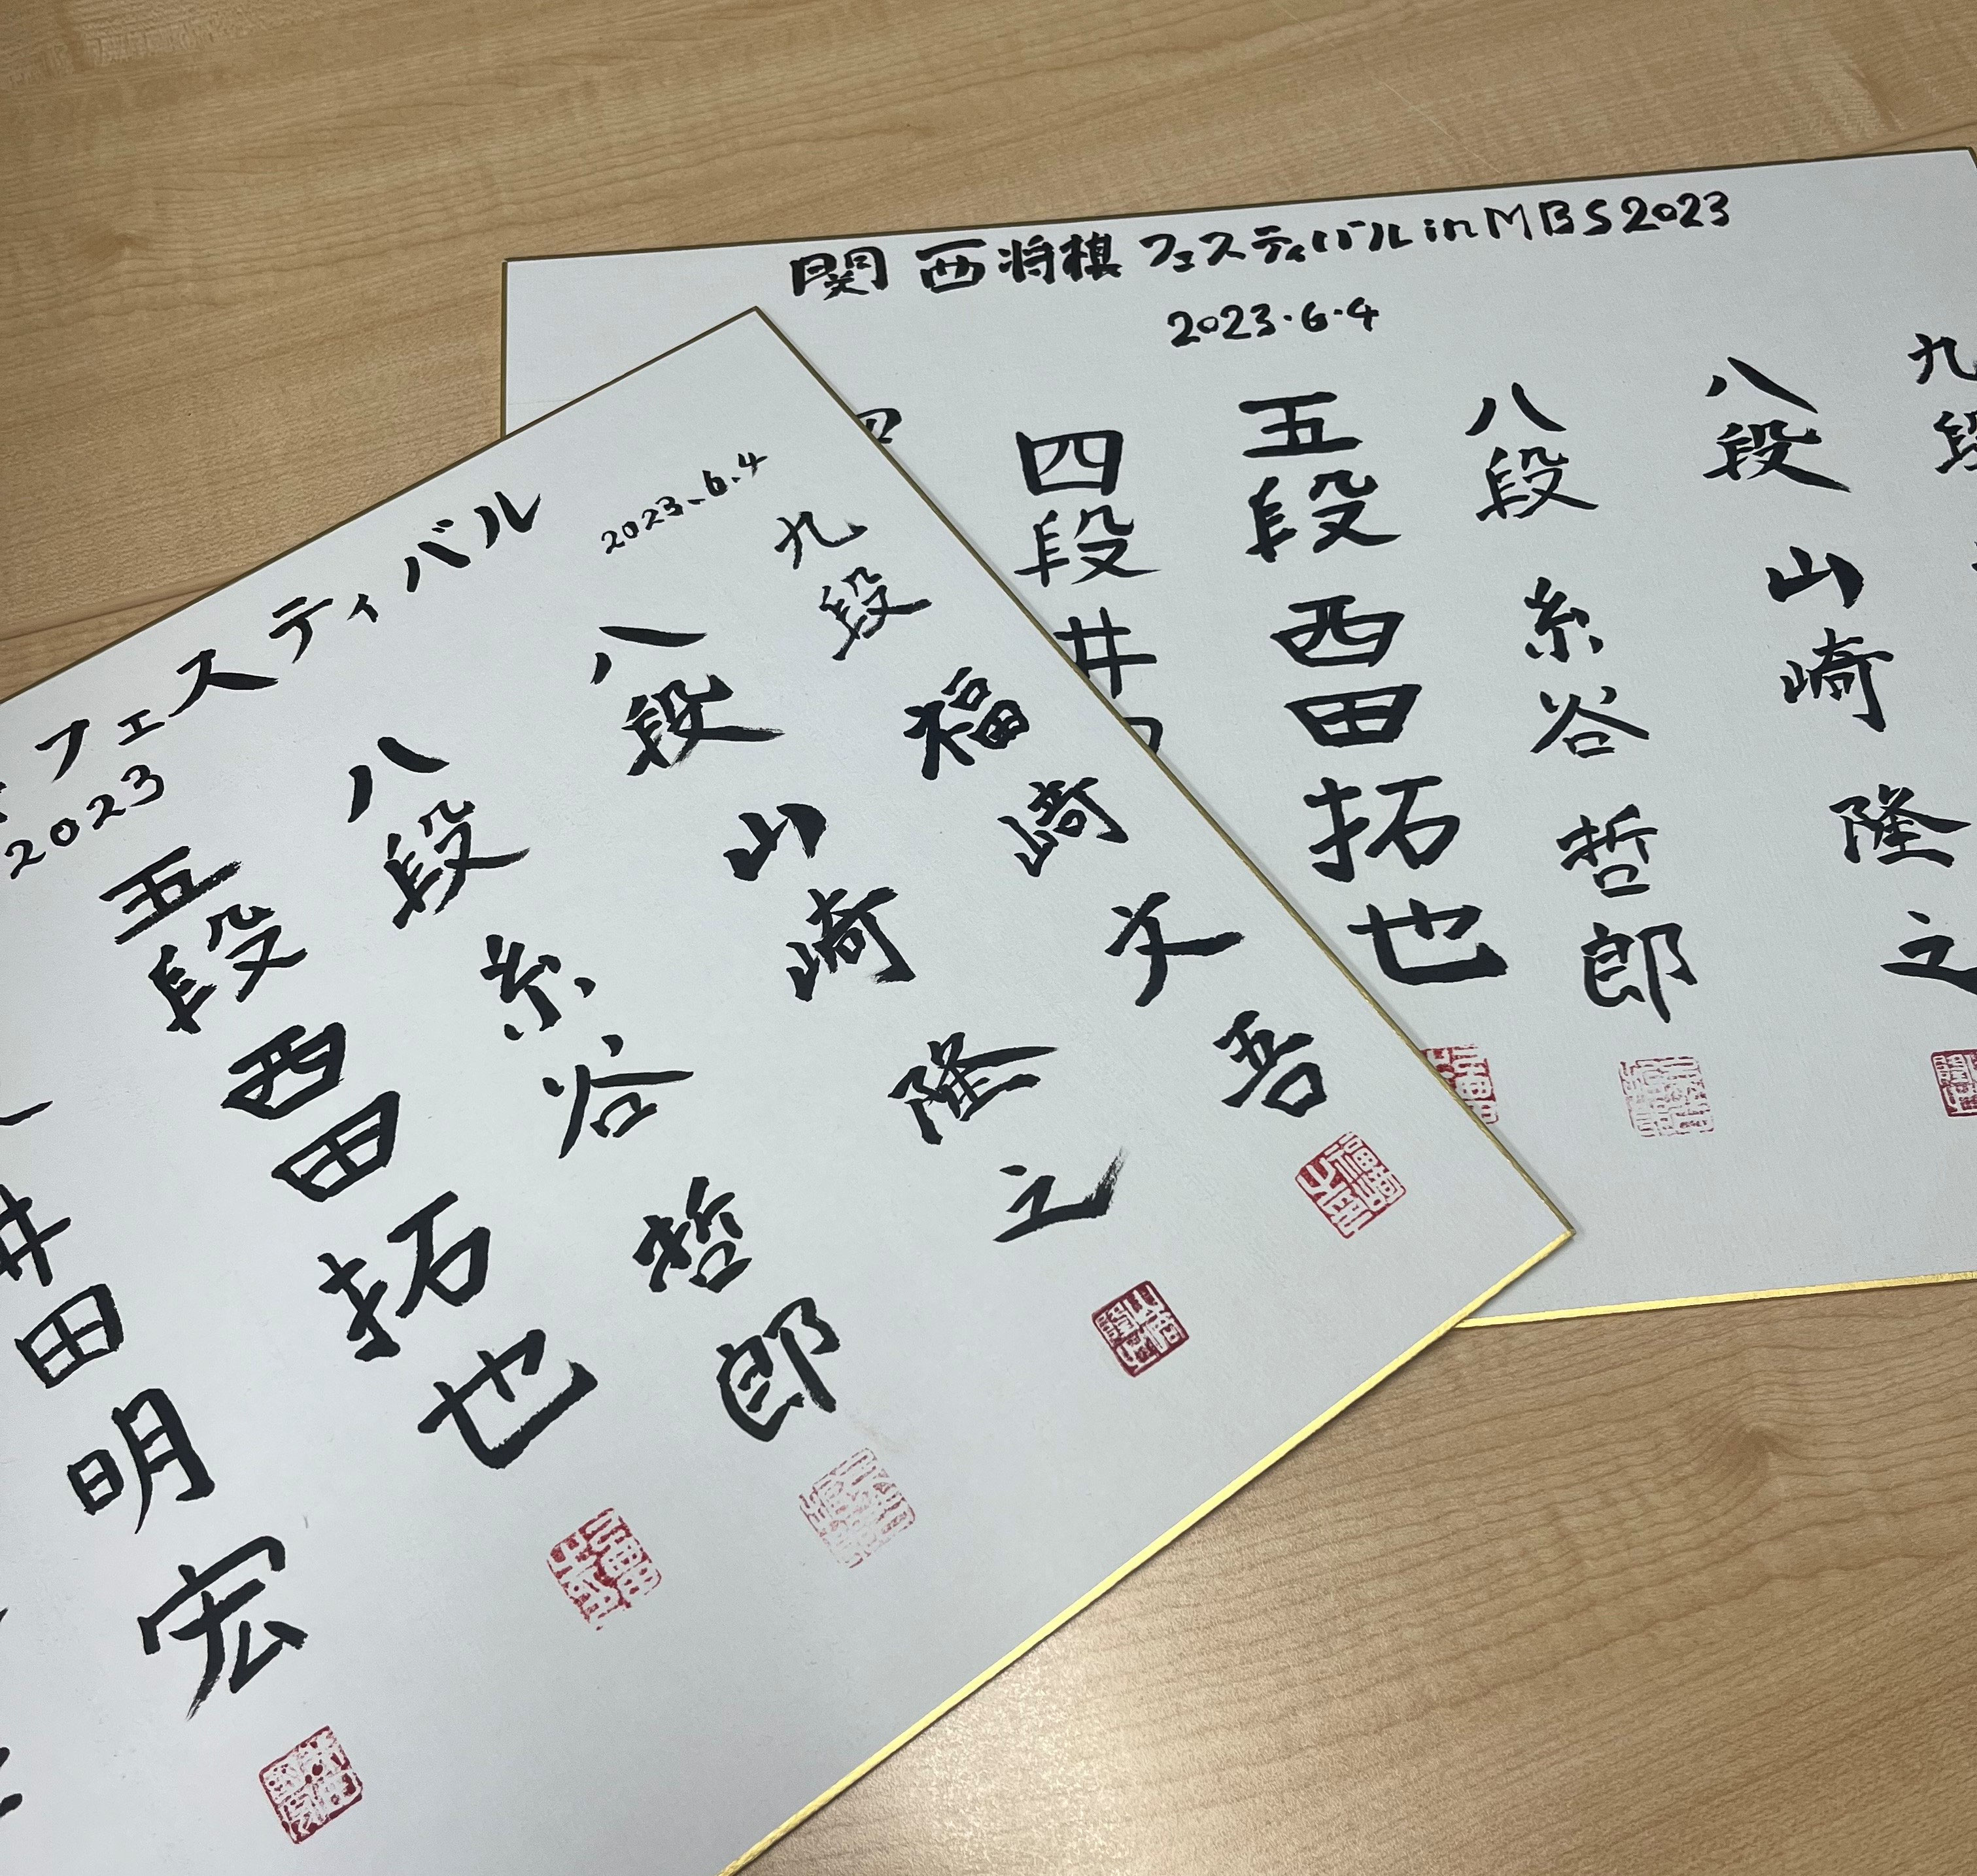 フェスティバル
2023
2023.6.4
九段 福崎文吾
八段 山崎隆之
八段 糸谷哲郎
五段 西田拓也
井田明宏
関西将棋フェスティバル in MBS2023
2023.6.4
九段
八段 山崎隆之
八段 糸谷哲郎
五段 西田拓也
四段 井